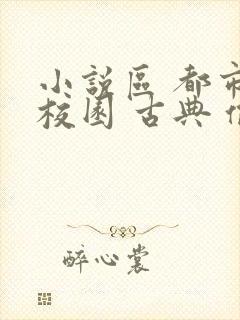 小說區 都市
校園 古典
醉心裳